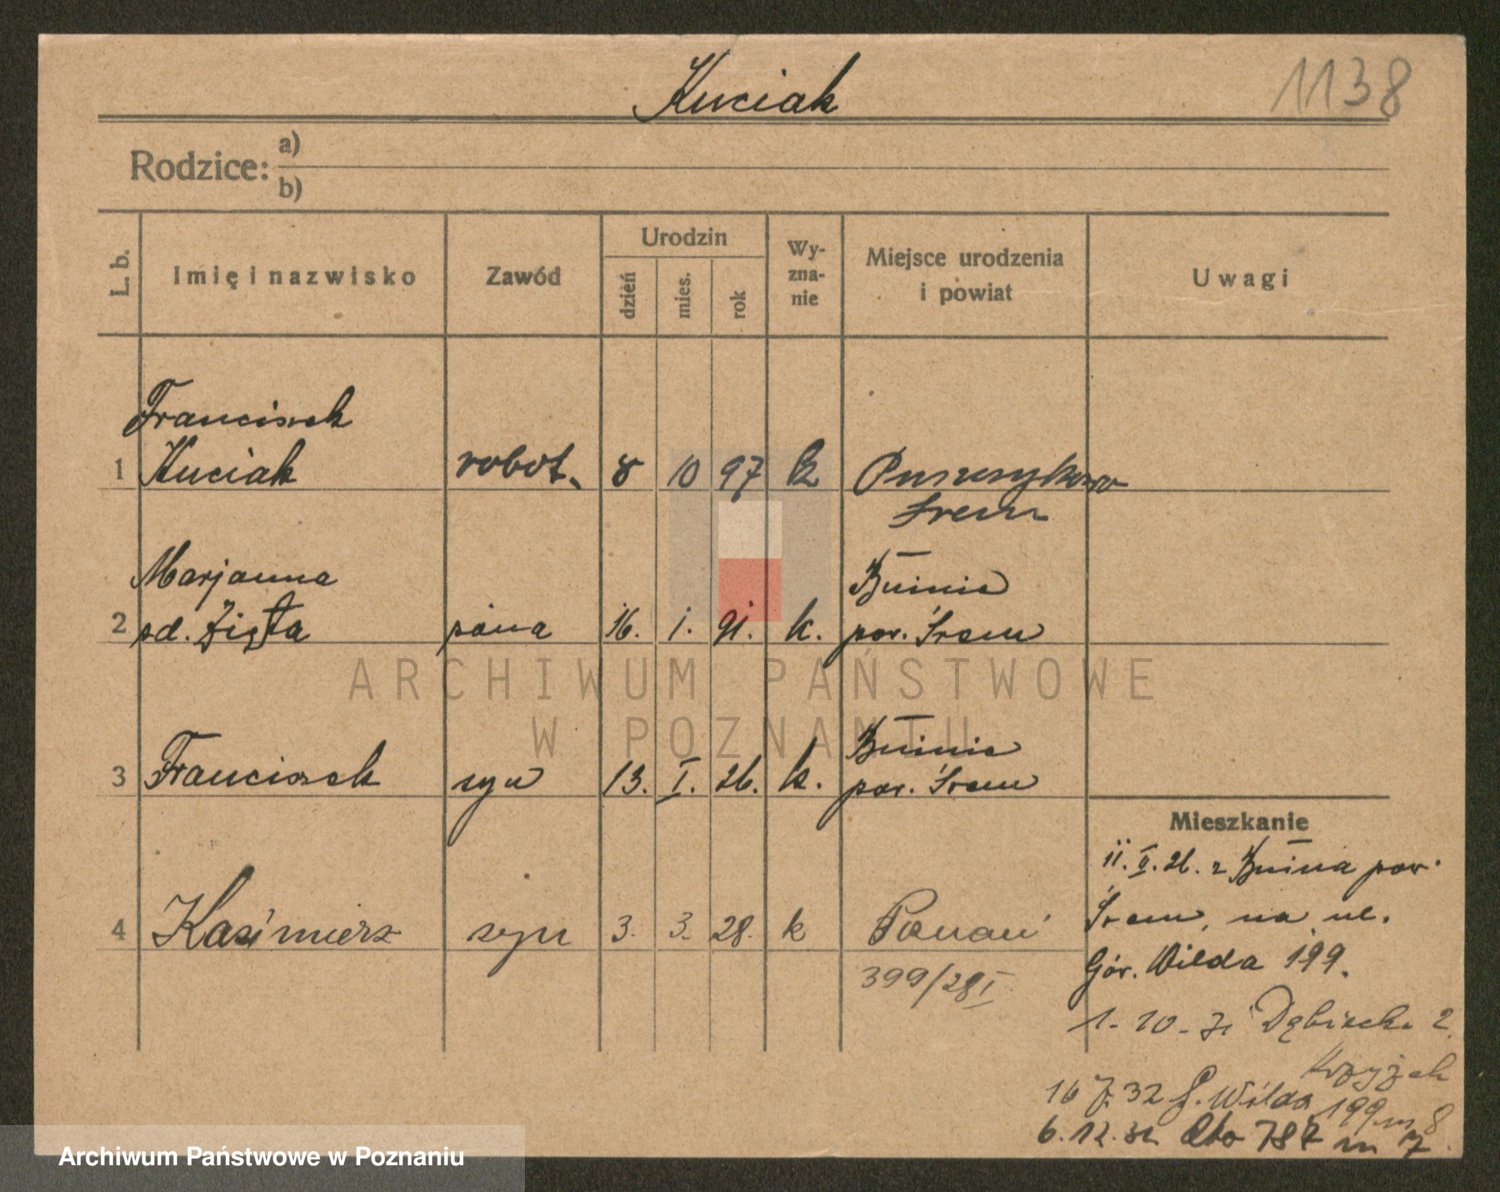 Kuciak
1138
Rodzice: a)
b)
L. b.
Imię i nazwisko
Zawód
Urodzin
dzień
mies.
rok
Wy-
zna-
nie
Miejsce urodzenia
i powiat
Uwagi
Franciszek
1 Kuciak robot. 8 10 97 Puszczykowo
Śrem
Marjanna Bninie
2 zd. Zięta żona 16. 1. 91. k. pow. Śrem
Bninie
3 Franciszek syn 13. I. 26. k. pow. Śrem
4 Kazimierz syn 3. 3. 28. k Poznań
399/28 I
Mieszkanie
11. II. 26. z Bnina pow.
Śrem, na ul.
Gór. Wilda 199.
1-10-31 Dąbiecka 2
Krzyżak
16 7. 32 G. Wilda 199 m 8
6.12.32 787 m 7
ARCHIWUM PAŃSTWOWE
W POZNANIU
Archiwum Państwowe w Poznaniu